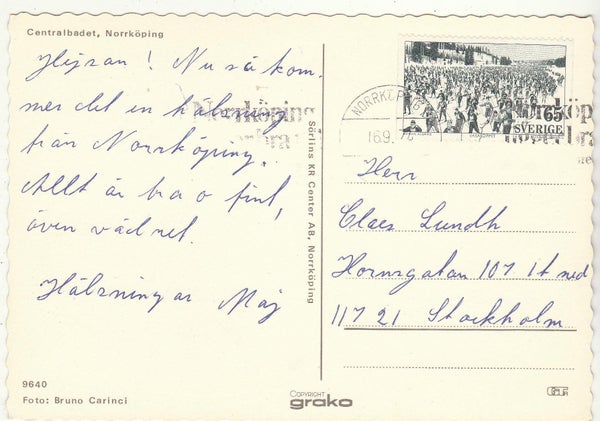 Centralbadet, Norrköping
Hejsan! Nu så kom-
mer det en hälsning
från Norrköping.
Allt är bra o fint,
även vädret.
Hälsningar Maj
9640
Foto: Bruno Carinci
Sörlins KR Center AB, Norrköping
COPYRIGHT
grako
NORRKÖPING
16.9.
Norrköping
65
SVERIGE
Herr
Claes Lundh
Hornsgatan 107 1t ned
117 21 Stockholm